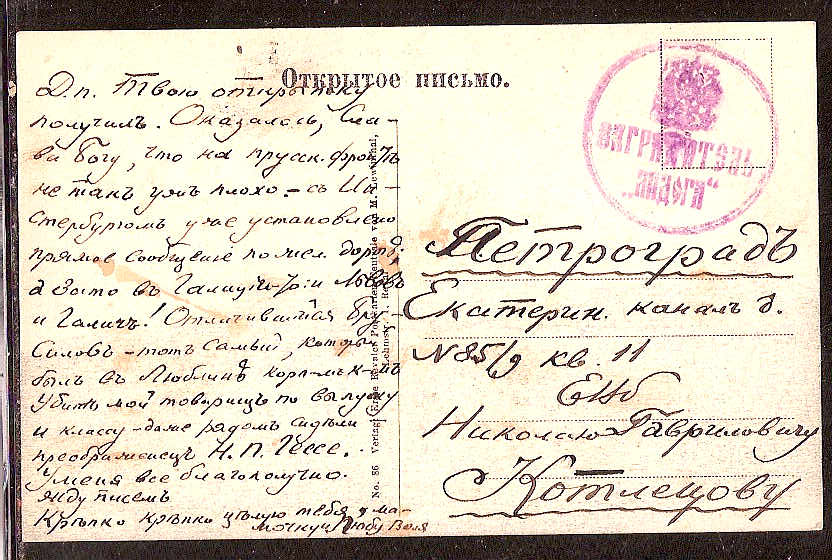 Открытое письмо.
Д.п. Твою открытку
получилъ. Оказалось, сла-
ва Богу, что на прусск. фронтѣ
не такъ ужъ плохо. – съ Ин-
стербургомъ уже установлено
прямое сообщеніе по жел. дорогѣ,
а зато въ Галиціи-то: и Львовъ
и Галичъ! Отличившійся Бру-
силовъ – тотъ самый, которы
былъ въ Люблинѣ
Убитъ мой товарищъ по выпуску
и классу – даже рядомъ сидѣли
преображенецъ Н. П. Гессе.
У меня все благополучно.
Жду писемъ
Крѣпко крѣпко цѣлую тебя и ма-
мочку и Любу Воля
No. 86 Verlag: Ernst Revaler Postkartenzentrale von M. Lewinthal,
Lehmstr. 1. Reval
Петроградъ
Екатерин. каналъ д.
N 85/9 кв. 11
ЕВб
Николаю Гавриловичу
Котлецову